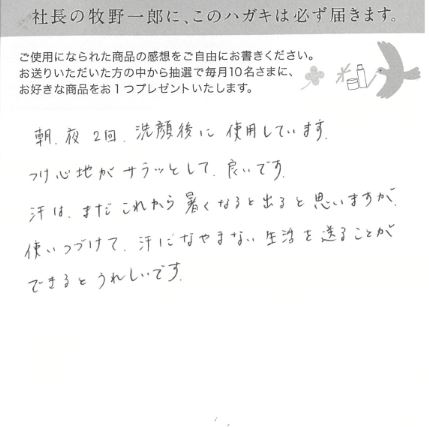 社長の牧野一郎に、このハガキは必ず届きます。
ご使用になられた商品の感想をご自由にお書きください。
お送りいただいた方の中から抽選で毎月10名さまに、
お好きな商品をお1つプレゼントいたします。
朝、夜 2回、洗顔後に 使用しています。
つけ心地が サラッとして、良いです。
汗は、まだ これから 暑くなると出ると思いますが、
使いつづけて、汗になやまない生活を送ることが
できると うれしいです。